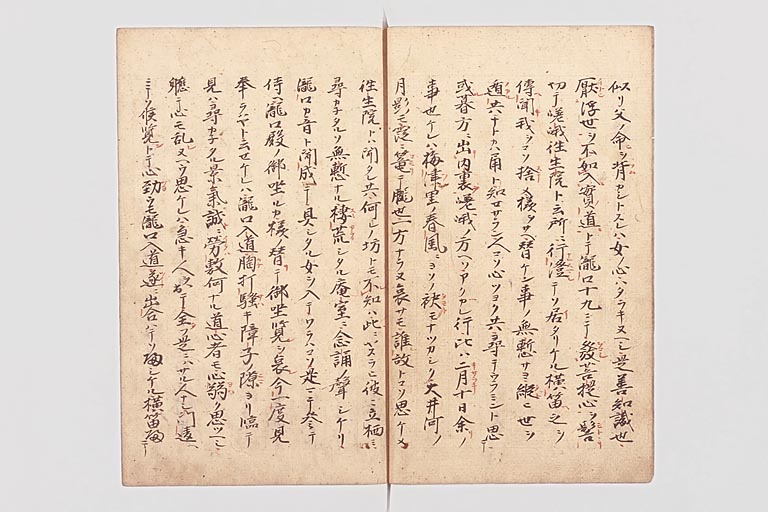 似リ父ノ命ヲ背カントスレハ女ノ心ハタラキ又コレ是善知識也
厭浮世ヲ不如入実道トテ瀧口十九ニテ発菩提心ヲ髻
切テ嵯峨往生院ト云所ニ行澄テソ居タリケル横笛之ヲ
傳聞我ヲコソ捨メ様ヲサヘ替ケン事ノ無慙サヨ縦ヒ世ヲ
遁共ナトカハ角ト知セサラン人コソ心ツヨク共尋テウラミント思
或暮方ニ出内裏嵯峨ノ方ヘソアクカレ行比ハ二月十日余ノ
事也ケレハ梅津里ノ春風ニヨソノ袂モナツカシク大井河ノ
月影モ霞ニ篭テ朧也一方ナラヌ哀サモ誰故トコソ思ケメ
往生院トハ聞タレ共何レノ坊トモ不知ハ此ニヤスラヒ彼ニ立栖ミ
尋カヌルソ無慙ナル棲荒シタル庵室ニ念誦ノ聲シケリ
瀧口カ音ト聞成シテ具シタル女ヲ入テワラハコソ是マテ参テ
侍ヘ瀧口殿ノ御坐ルカ様替テ御坐覧ヲ哀今一度見
奉ラハヤト云セケレハ瀧口入道胸打騒キ障子ノ隙ヨリ臨テ
見ハ尋カヌル景気誠ニ労敷何ナル道心者モ心弱ク思ツヘシ
軈テ心モ乱ヌヘウ思ケレハ急キ人ヲ出テ全ク是ニハサル人ナシ門違
ニテソ候覧トテ心勁ウモ瀧口入道遂ニ出合ハテソ帰シケル横笛帰テ